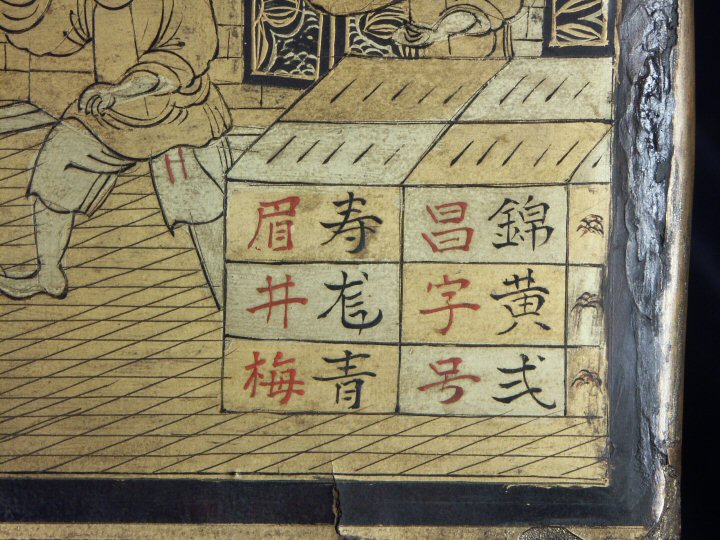 錦昌 寿眉
黄字 龙井
弍号 青梅